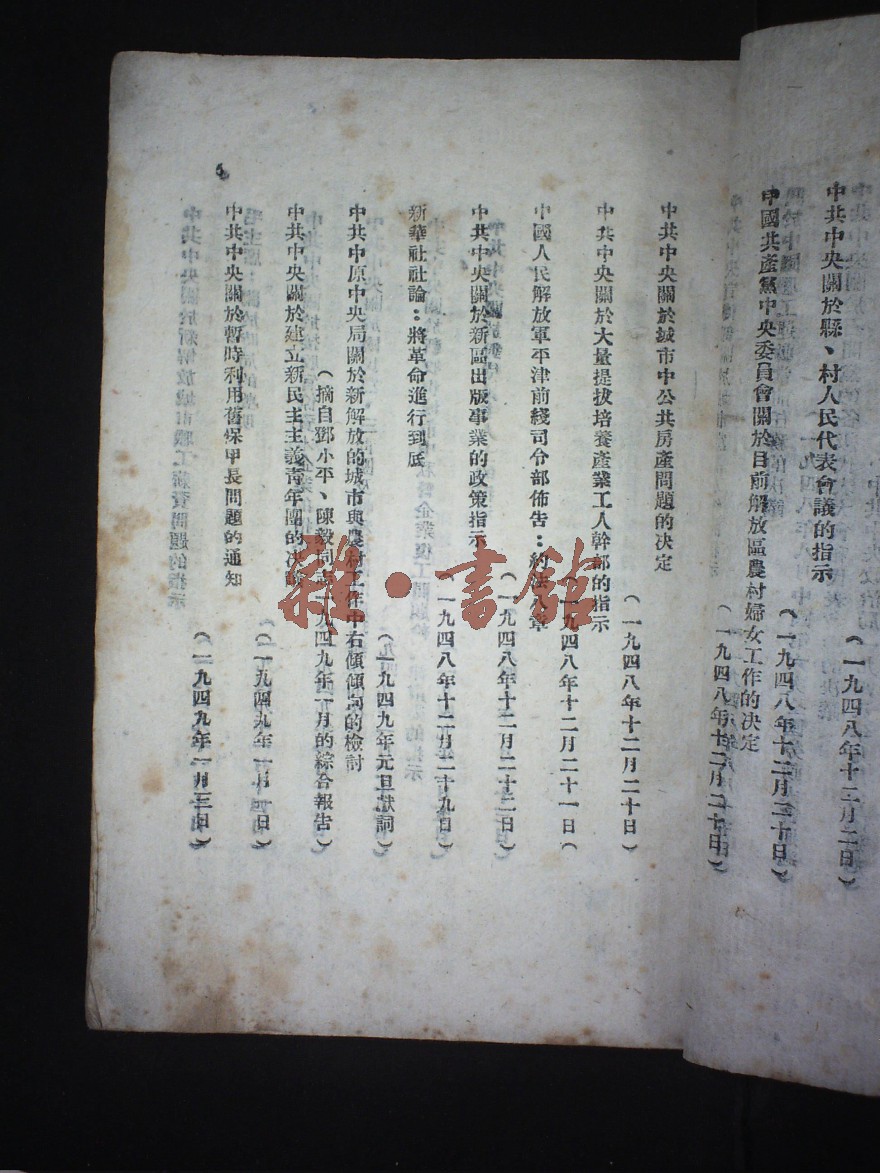 中共中央關於縣、村人民代表會議的指示
中國共產黨中央委員會關於目前解放區農村婦女工作的決定
（一九四八年十二月二十日）
中共中央關於城市中公共房產問題的決定
（一九四八年十二月二十日）
中共中央關於大量提拔培養產業工人幹部的指示
（一九四八年十二月二十一日（
中國人民解放軍平津前綫司令部佈告：約法八章
（一九四八年十二月二十二日）
中共中央關於新區出版事業的政策指示
（一九四八年十二月二十九日）
新華社社論：將革命進行到底
（一九四九年元旦獻詞）
中共中原中央局關於新解放的城市與農村工作中右傾傾向的檢討
（摘自鄧小平、陳毅同志一九四九年一月的綜合報告）
中共中央關於建立新民主主義青年團的決議
（一九四九年一月一日）
中共中央關於暫時利用舊保甲長問題的通知
（一九四九年一月三日）
雜·書館